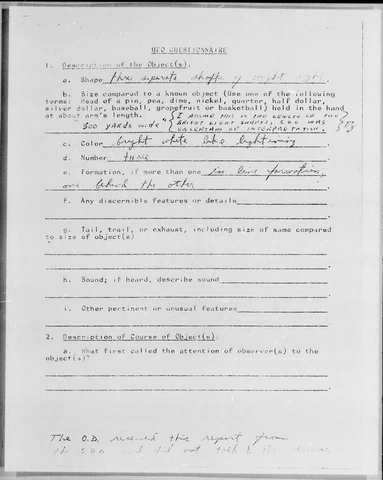 UFO QUESTIONNAIRE
1. Description of the Object(s):
a. Shape three separate shafts of bright light
b. Size compared to a known object (Use one of the following
terms: Head of a pin, pea, dime, nickel, quarter, half dollar,
silver dollar, baseball, grapefruit or basketball) held in the hand
at about arm's length. I ASSUME THIS IS THE LENGTH OF THE
"300 YARDS WIDE" BRIGHT LIGHT SHAFTS, COC WAS
UNCERTAIN OF INTERPRETATION.
c. Color bright white like lightening
d. Number three
e. Formation, if more than one in line formation,
one behind the other
f. Any discernible features or details
g. Tail, trail, or exhaust, including size of same compared
to size of object(s)
h. Sound; if heard, describe sound
i. Other pertinent or unusual features
2. Description of Course of Object(s):
a. What first called the attention of observer(s) to the
object(s)?
The O.D. received this report from
the and did not talk to the